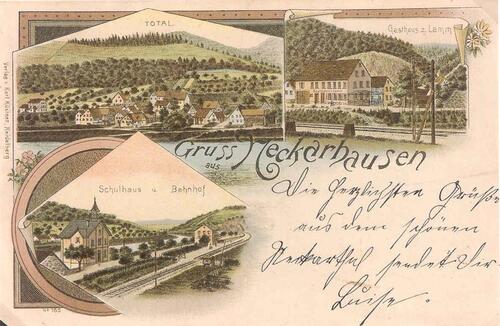 TOTAL.
Gasthaus z. Lamm
Verlag v. Karl Küstner, Heidelberg
Gruss aus Neckarhausen
Schulhaus u. Bahnhof
Die herzlichsten Grüße
aus dem schönen
Neckarthal sendet Dir
Luise.
No 165